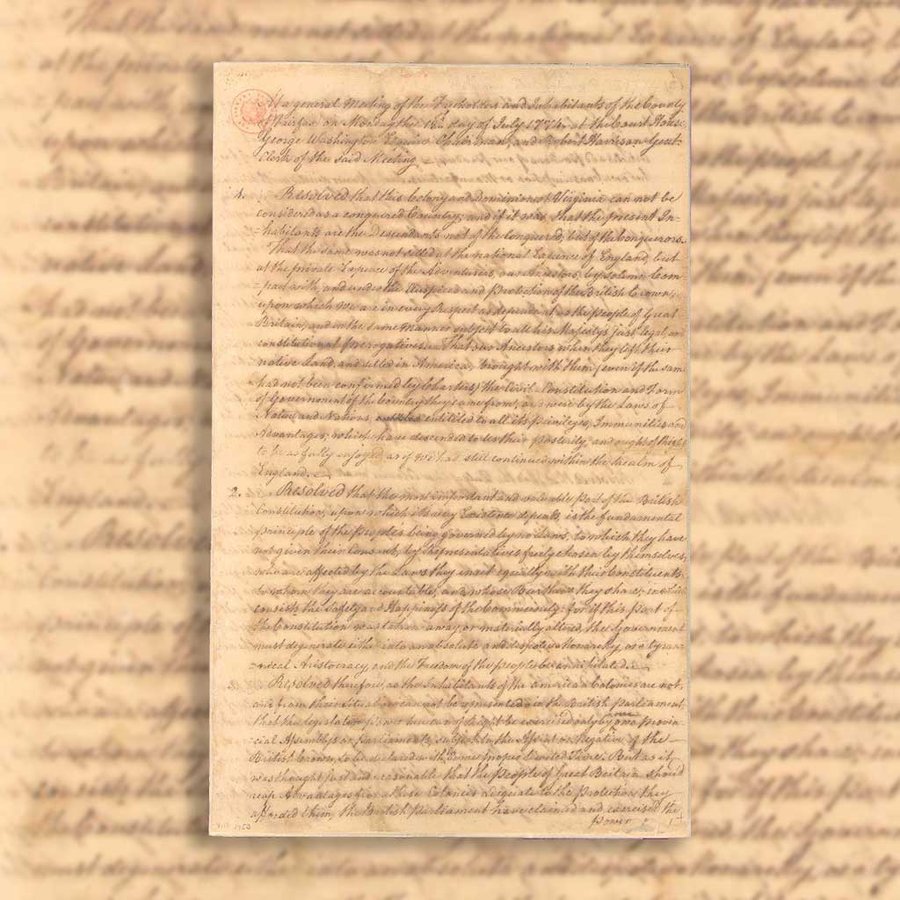 At a general Meeting of the Freeholders and Inhabitants of the County
of Fairfax on Monday the 18th day of July 1774, at the Court House
George Washington Esquire Chairman, and Robert Harrison Gent.
Clerk of the said Meeting
1. Resolved that this Colony and Dominion of Virginia can not be
considered as a conquered Country; and if it was, that the present In-
habitants are the Descendants not of the Conquered, but of the Conquerors.
That the same was not setled at the national Expence of England, but
at the private Expence of the Adventurers, our Ancestors, by solemn Com-
pact with, and under the Auspices and Protection of the British Crown;
upon which we are in every Respect as dependant, as the People of Great
Britain, and in the same Manner subject to all his Majesty's just, legal, and
constitutional Prerogatives. That our Ancestors, when they left their
native Land, and setled in America, brought with them (even if the same
had not been confirmed by Charters) the Civil-Constitution and Form
of Government of the Country they came from; and were by the Laws of
Nature and Nations, entitled to all it's Privileges, Immunities and
Advantages; which have descended to us their Posterity, and ought of Right
to be as fully enjoyed, as if we had still continued within the Realm of
England.
2. Resolved that the most important and valuable Part of the British
Constitution, upon which it's very Existence depends, is the fundamental
Principle of the People's being governed by no Laws, to which they have
not given their Consent, by Representatives freely chosen by themselves;
who are affected by the Laws they enact equally with their Constituents;
to whom they are accountable, and whose Burthens they share; in which
consists the Safety and Happiness of the Community: for if this Part of
the Constitution was taken away, or materially altered, the Government
must degenerate either into an absolute and despotic Monarchy, or a tyran-
nical Aristocracy, and the Freedom of the People be annihilated.
3. Resolved therefore, as the Inhabitants of the american Colonies are not,
and from their situation can not be represented in the British Parliament,
that the legislative Power here can of Right be exercised only by our own Provin-
cial Assemblys or Parliaments, subject to the Assent or Negative of the
British Crown, to be declared within some proper limited Time. But as it
was thought just and reasonable that the People of Great Britain should
reap Advantages from these Colonies adequate to the Protection they
afforded them, the British Parliament have claimed and exercised the
Power